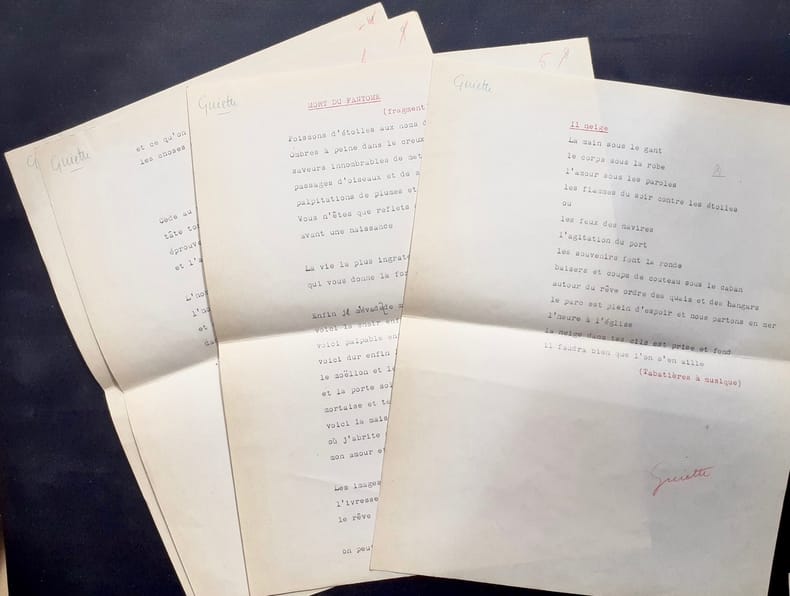 Guiette
et ce qu'on
les choses
Cède au
tâte
éprouve
et l'a
L'no
l'no
et
da
Guiette
MORT DU FANTOME
(fragment
Poissons d'étoiles aux noms
Ombres à peine dans le creux
saveurs innombrables de
passages d'oiseaux et de
palpitations de plumes et
Vous n'êtes que reflets
avant une naissance
La vie la plus ingrate
qui vous donne la
Enfin je m'évade
voici la
voici palpable
voici dur enfin
le moëllon et le
et la porte
mortaise et
voici la
où j'abrite
mon amour et
Les images
l'ivresse
le rêve
on
5
Guiette
Il neige
La main sous le gant
le corps sous la robe
l'amour sous les paroles
les flammes du soir contre les étoiles
ou
les feux des navires
l'agitation du port
les souvenirs font la ronde
baisers et coups de couteau sous le caban
autour du rêve ordre des quais et des hangars
le parc est plein d'espoir et nous partons en mer
l'heure à l'église
la neige dans tes cils est prise et fond
il faudra bien que l'on s'en aille
(Tabatières à musique)
Guiette